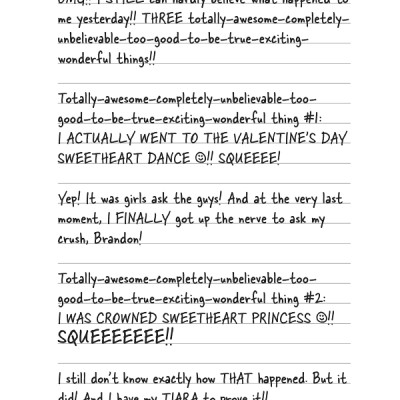 OMG!! I STILL can hardly believe what happened to
me yesterday!! THREE totally-awesome-completely-
unbelievable-too-good-to-be-true-exciting-
wonderful things!!
Totally-awesome-completely-unbelievable-too-
good-to-be-true-exciting-wonderful thing #1:
I ACTUALLY WENT TO THE VALENTINE'S DAY
SWEETHEART DANCE ☺!! SQUEEEE!
Yep! It was girls ask the guys! And at the very last
moment, I FINALLY got up the nerve to ask my
crush, Brandon!
Totally-awesome-completely-unbelievable-too-
good-to-be-true-exciting-wonderful thing #2:
I WAS CROWNED SWEETHEART PRINCESS ☺!!
SQUEEEEEEE!!
I still don't know exactly how THAT happened. But it
did! And I have my TIARA to prove it!!